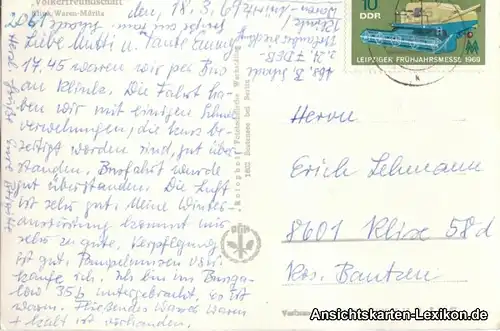 Völkerfreundschaft
Klink, Waren-Müritz
den, 18. 3. 69
2061
Liebe Mutti u. Tante Emmy
17,45 waren wir per Bus
an Klink. Die Fahrt ha-
ben wir mit einigen Schnee
verwehungen, die kurz be-
seitigt worden sind, gut über-
standen. Busfahrt wurde
gut überstanden. Die Luft
ist sehr gut. Meine Winter-
ausrüstung kommt mir
sehr zu gute. Verpflegung
ist gut. Pampelmusen
kaufe ich. Ich bin im Bunga-
low 35b untergebracht, es ist
warm. Fließendes Wasser warm
+ kalt ist vorhanden.
Abs. B.
10
DDR
LEIPZIGER FRÜHJAHRSMESSE 1969
Herrn
Erich Lehmann
8601 Klix 58d
Krs. Bautzen
Ansichtskarten-Lexikon.de